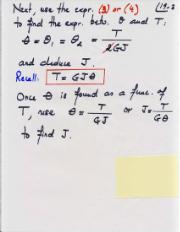 Next, use the expr. (3) or (4) (19-2
to find the expr. betw. θ and T:
θ = θ₁ = θ₂ = T / 2GJ
and deduce J.
Recall: T = GJθ
Once θ is found as a func. of
T, use θ = T / GJ or J = T / Gθ
to find J.